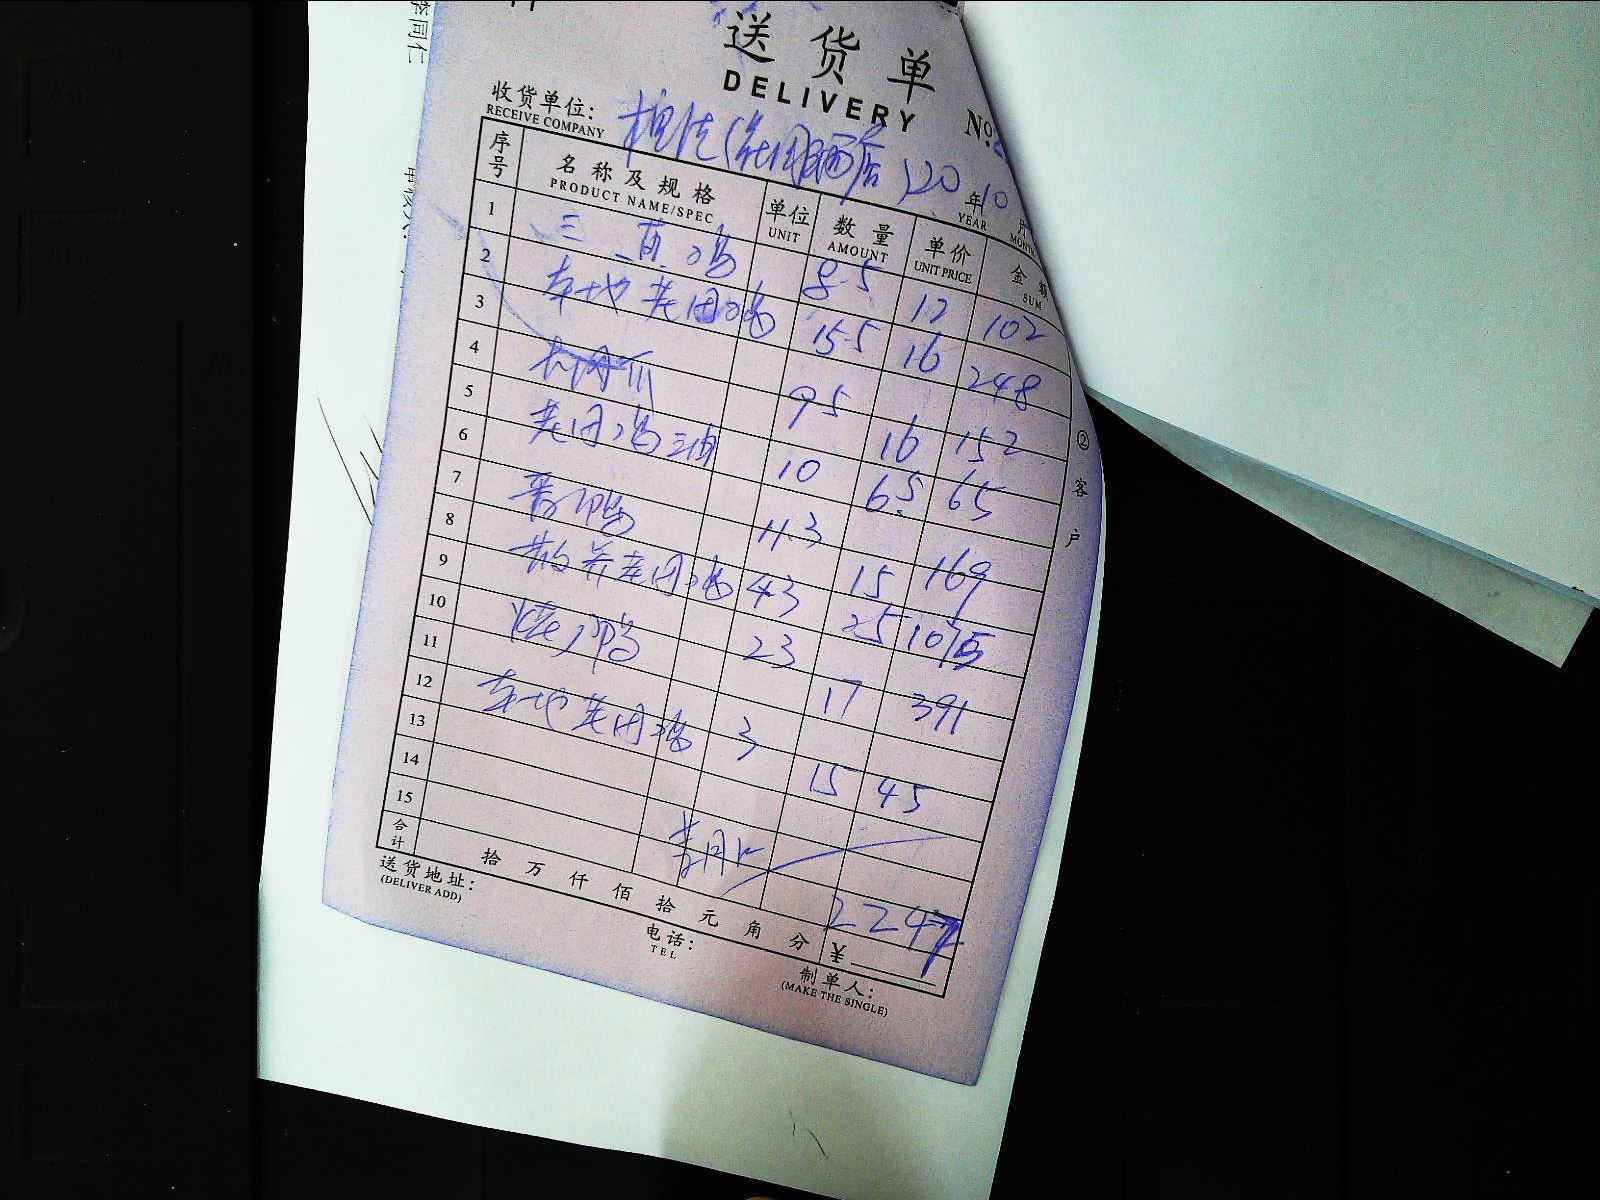 李同仁
送货单
DELIVERY
No.
收货单位:
RECEIVE COMPANY
20 年 10 月
YEAR MONTH
序号 名称及规格 单位 数量 单价 金额
PRODUCT NAME/SPEC UNIT AMOUNT UNIT PRICE SUM
1 三黄鸡 8.5 12 102
2 本地老母鸡 15.5 16 248
3
4 9.5 16 152
5 老母鸡 10 6.5 65
6
7 11.3 15 169
8 散养老母鸡 43 25 1075
9
10 23 17 391
11
12 本地老母鸡 3 15 45
13
14
15 李同仁
合计 拾 万 仟 佰 拾 元 角 分 ¥ 2247
送货地址:
(DELIVER ADD)
电话:
TEL
制单人:
(MAKE THE SINGLE)
②客户